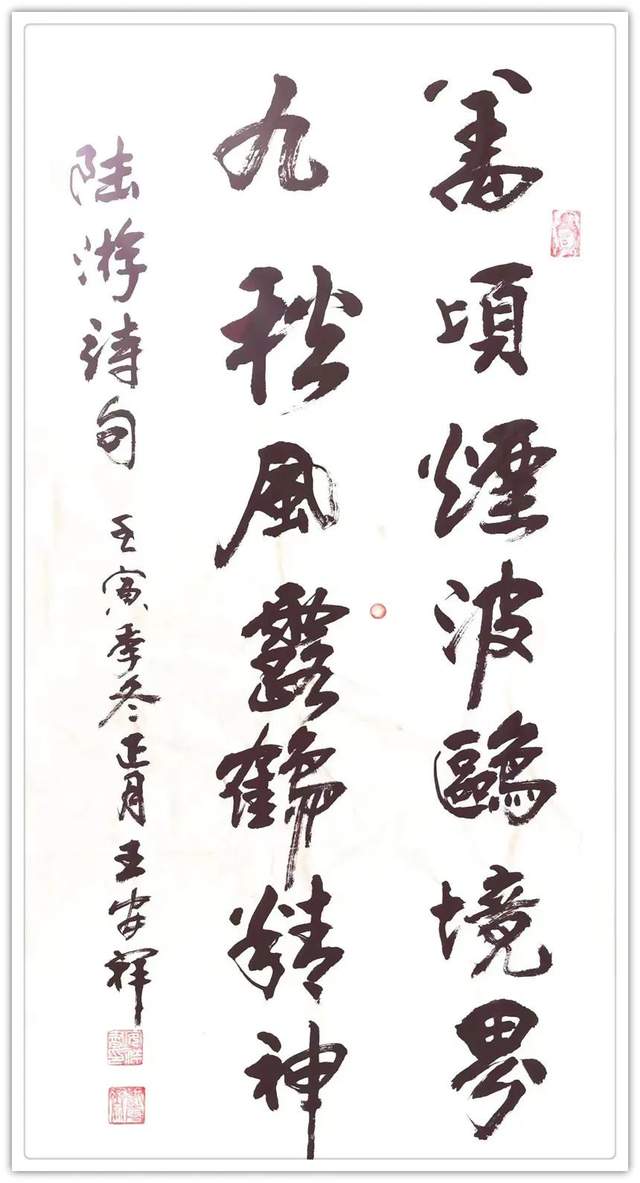 萬頃煙波鷗境界
九秋風露鶴精神
陆游诗句 壬寅季冬正月王安祥